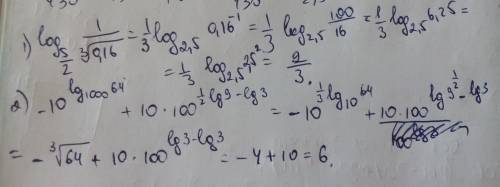 1) log_{5/2} 1/∛0,16 = 1/3 log_{2,5} 0,16^{-1} = 1/3 log_{2,5} 100/16 = 1/3 log_{2,5} 6,25 =
= 1/3 log_{2,5} 2,5^2 = 2/3.
2) -10^{lg_{1000} 64} + 10·100^{1/2 lg9 - lg3} = -10^{1/3 lg_{10} 64} + 10·100^{lg9^{1/2} - lg3}
= -∛64 + 10·100^{lg3-lg3} = -4+10=6.